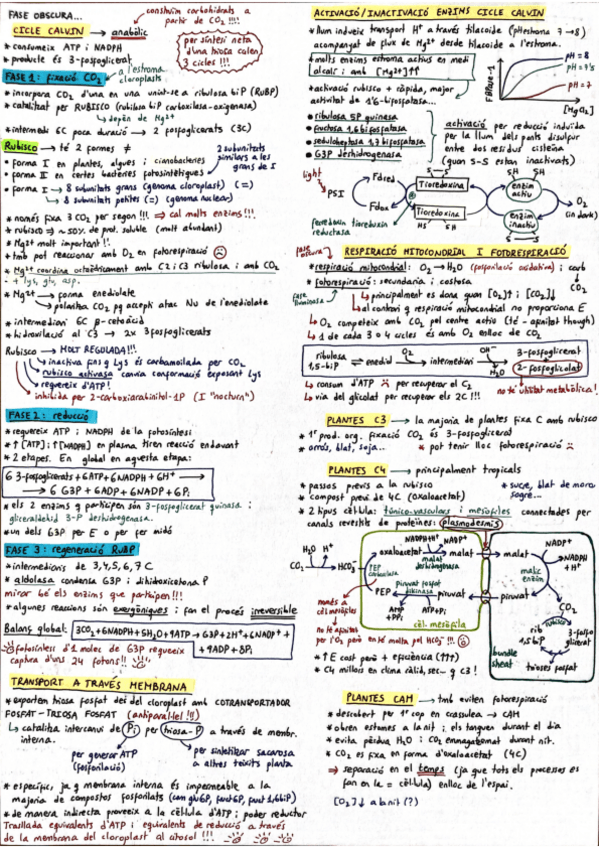 FASE OBSCURA...
CICLE CALVIN → anabòlic
construïm carbohidrats a
partir de CO2 !!!!
* consumeix ATP i NADPH
* producte és 3-fosfoglicerat
per síntesi neta
d'una triosa calen
3 cicles !!!
FASE 1: fixació CO2
a l'estroma
cloroplasts
* incorpora CO2 d'una en una unint-se a ribulosa biP (RUBP)
* catalitzat per RUBISCO (ribulosa biP carboxilasa-oxigenasa)
depèn de Mg2+
* intermedi 6C poca duració → 2 fosfoglicerats (3C)
Rubisco → té 2 formes ≠
2 subunitats
similars a les
grans de I
* forma I en plantes, algues i cianobacteries
* forma II en certes bacteries fotosintètiques
* forma I → 8 subunitats grans (genoma cloroplast) (=)
8 subunitats petites (=) (genoma nuclear)
* només fixa 3 CO2 per segon !!! ⇒ cal molts enzims!!!
* rubisco ⇒ ~50% de prot. soluble (molt abundant)
* Mg2+ molt important !!
* tmb pot reaccionar amb O2 en fotorespiració
* Mg2+ coordina octaèdricament amb C2 i C3 ribulosa i amb CO2
+ lys, glu, asp.
* Mg2+ → forma enediolate
polaritza CO2 pq accepti atac Nu de l'enediolate
* intermediari 6C β-cetoàcid
* hidroxilació al C3 → 2x 3-fosfoglicerats
Rubisco → MOLT REGULADA!!!
inactiva fins q Lys és carbamoilada per CO2
rubisco activasa canvia conformació exposant Lys
requereix d'ATP!
inhibida per 2-carboxiarabinitol-1P (I "nocturn")
FASE 2: reducció
* requereix ATP i NADPH de la fotosíntesi
* ↑[ATP] i ↑[NADPH] en plasma tiren reacció endavant
* 2 etapes. En global en aquesta etapa:
6 3-fosfoglicerats + 6ATP + 6NADPH + 6H+ →
→ 6 G3P + 6ADP + 6NADP + 6Pi
* els 2 enzims q participen són 3-fosfoglicerat quinasa i
gliceraldehid 3-P deshidrogenasa.
* un dels G3P per E o per fer midó
FASE 3: regeneració RUBP
* intermediaris de 3,4,5,6,7 C
* aldolasa condensa G3P i dihidroxicetona P
mirar bé els enzims que participen!!!
* algunes reaccions són exergòniques i fan el procés irreversible
Balanç global:
3CO2 + 6NADPH + 5H2O + 9ATP → G3P + 2H+ + 6NADP+ +
+ 9ADP + 8Pi
fotosíntesi d'1 molec de G3P requereix
captura d'uns 24 fotons!!
TRANSPORT A TRAVÉS MEMBRANA
* exporten triosa fosfat des del cloroplast amb COTRANSPORTADOR
FOSFAT-TRIOSA FOSFAT (antiparal·lel !!)
catalitza intercanvi de Pi per triosa-P a través de membr.
interna.
per generar ATP
(fosforilació)
per sintetitzar sacarosa
a altres teixits planta
* específic, ja q membrana interna és impermeable a la
majoria de compostos fosforilats (com glu6P, fruct6P, fruct1,6biP)
* de manera indirecta proveeix a la cèl·lula d'ATP i poder reductor
Trasllada equivalents d'ATP i equivalents de reducció a través
de la membrana del cloroplast al citosol !!!
ACTIVACIÓ/INACTIVACIÓ ENZIMS CICLE CALVIN
* llum indueix transport H+ a través tilacoide (pH estroma 7→8)
acompanyat de flux de Mg2+ desde tilacoide a l'estroma.
* molts enzims estroma actius en medi
alcalí i amb [Mg2+]↑↑
* activació rubisco + ràpida, major
activitat de 1'6-bifosfatasa...
FBPase-1
pH=8
pH=7'5
pH=7
[MgCl2]
* ribulosa 5P quinasa
* fructosa 1,6 bifosfatasa
* sedoheptulosa 1,7 bifosfatasa
* G3P deshidrogenasa
activació per reducció induïda
per la llum dels ponts disulfur
entre dos residus cisteïna
(quan S-S estan inactivats)
light
PSI
Fdred
Fdox
ferredoxin tioredoxin
reductasa
SH SH
Tioredoxina
Tioredoxina
S S
SH SH
enzim
actiu
enzim
inactiu
S-S
O2
(in dark)
RESPIRACIÓ MITOCONDRIAL I FOTORESPIRACIÓ
fase
obscura
* respiració mitocondrial: O2 → H2O (fosforilació oxidativa) i carb
CO2
* fotorespiració: secundària i costosa
fase
lluminosa
principalment es dona quan [O2]↑ i [CO2]↓
al contrari q respiració mitocondrial no proporciona E
O2 competeix amb CO2 pel centre actiu (té - afinitat though)
1 de cada 3 o 4 cicles és amb O2 enlloc de CO2
ribulosa
1,5-biP
enediol
O2
intermediari
OH-
H2O
3-fosfoglicerat
2-fosfoglicolat
no té utilitat metabòlica!
consum d'ATP per recuperar el C2
via del glicolat per recuperar els 2C !!!
PLANTES C3 → la majoria de plantes fixa C amb rubisco
* 1r prod. org. fixació CO2 és 3-fosfoglicerat
* arròs, blat, soja...
* pot tenir lloc fotorespiració
PLANTES C4 → principalment tropicals
* passos previs a la rubisco
* sucre, blat de moro
sogre...
* compost previ de 4C (oxaloacetat)
* 2 tipus cèl·lula: túnico-vasculars i mesòfiles connectades per
canals revestits de proteïnes: plasmodesmis
H2O
H+
CO2
HCO3-
PEP
carboxilasa
Pi
oxaloacetat
NADPH+H+
NADP+
malat
malat
deshidrogenasa
PEP
piruvat fosfat
dikinasa
piruvat
AMP
+PPi
ATP+Pi
cèl. mesòfila
només a
cèl mesòfiles
no té afinitat
per l'O2 però en té molta pel HCO3- !!!
malat
NADP+
NADPH
+H+
malic
enzim
piruvat
CO2
rubisco
rib
1,5biP
3-fosfo
glicerat
trioses fosfat
bundle
sheat
* ↑E cost però + eficiència (↑↑↑)
* C4 millors en clima càlid, sec → q C3!
PLANTES CAM → tmb eviten fotorespiració
* descobert per 1r cop en crassulea → CAM
* obren estomes a la nit i els tanquen durant el dia
* evita pèrdua H2O i CO2 emmagatzemat durant nit.
* CO2 es fixa en forma d'oxaloacetat (4C)
⇒ separació en el temps (ja que tots els processos es
fan en la = cèl·lula) enlloc de l'espai.
[O2]↓ a la nit (?)